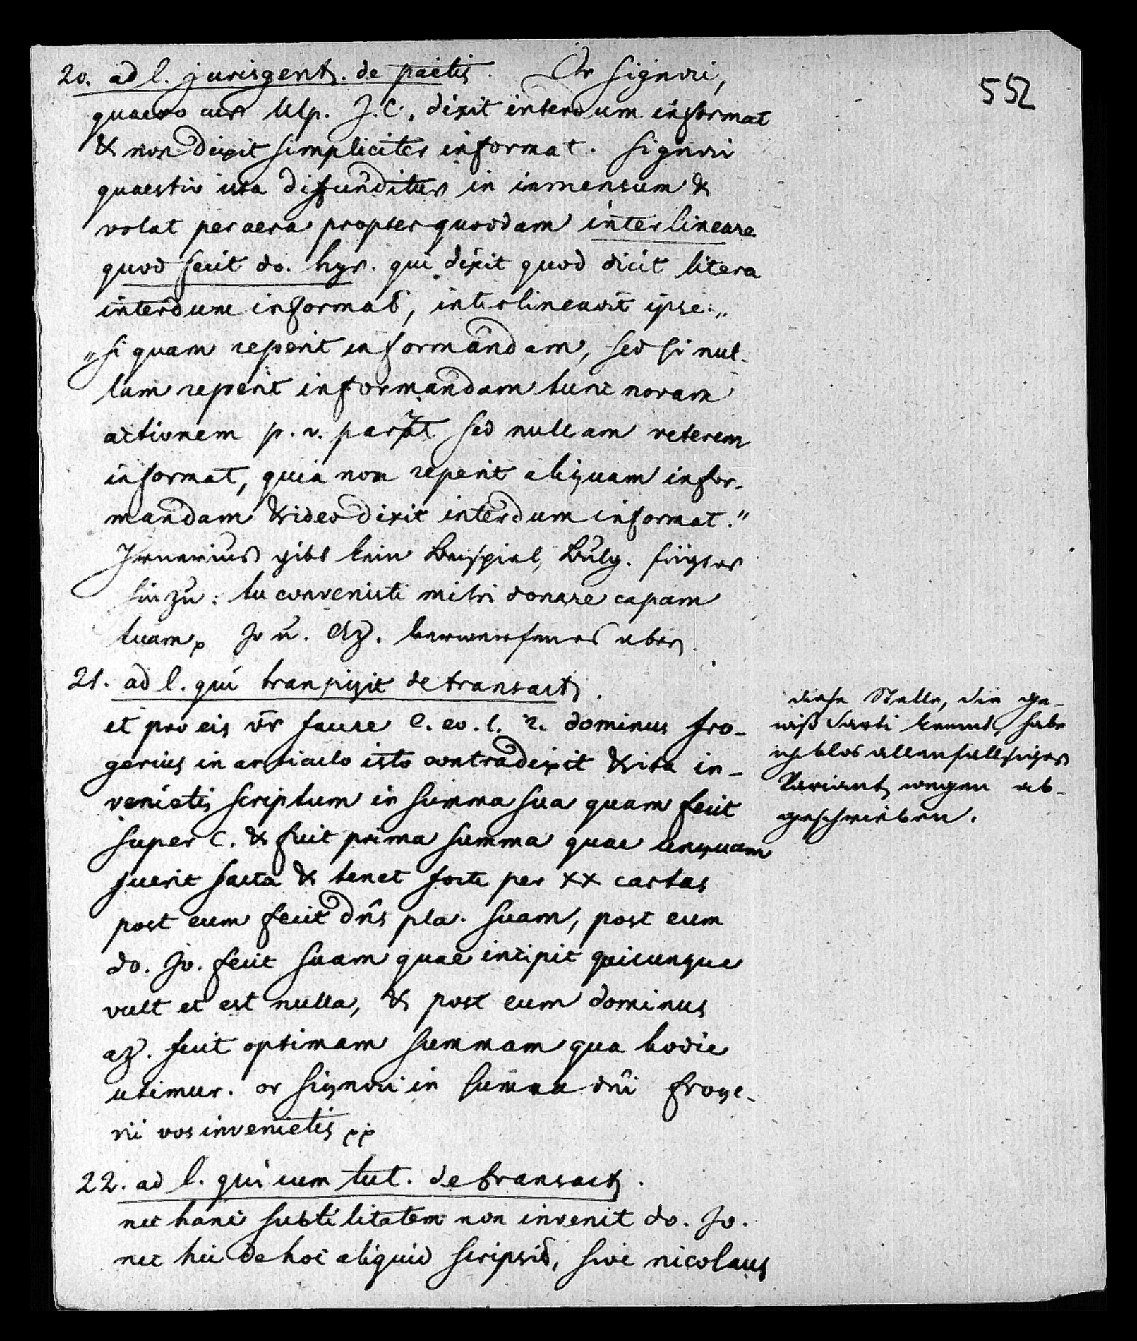 552
20. ad l. jurisgent. de pactis. Or signori,
quaero cur Ulp. J.C. dixit interdum informat
& non dixit simpliciter informat. Signori
quaestio ista difunditur in inmensum &
volat per aera propter quoddam interlineare
quod fecit do. hyr. qui dixit quod dicit litera
interdum informat, interlineavit ipse: „
„si quam reperit informandam, sed si nul-
lam reperit informandam tunc novam
actionem p. v. parit sed nullam veterem
informat, quia non reperit aliquam infor-
mandam & ideo dixit interdum informat."
Irnerius gibt kein Beispiel, Bulg. fügt es
hinzu: tu convenisti mihi donare capam
tuam, Jo u. Az. verwerfen es aber.
21. ad l. qui transigit de transact.
et pro eis vr facere C. eo. l. 2. dominus fro-
gerius in articulo isto contradixit & ita in-
venietis scriptum in summa sua quam fecit
super C. & fuit prima summa quae unquam
fuerit facta & tenet forte per xx cartas
post eum fecit dns pla. suam, post eum
do. Jo. fecit suam quae incipit quicunque
vult et est nulla, & post eum dominus
az. fecit optimam summam qua hodie
utimur. or signori in summa dni froge-
rii vos invenietis pp
diese Stelle, die ge-
wiß Sarti kennt, habe
ich blos allenfallsiger
Variant. wegen ab-
geschrieben.
22. ad l. qui cum tut. de transact.
nec hanc subtilitatem non invenit do. Jo.
nec hic de hoc aliquid scripsit, sive nicolaus